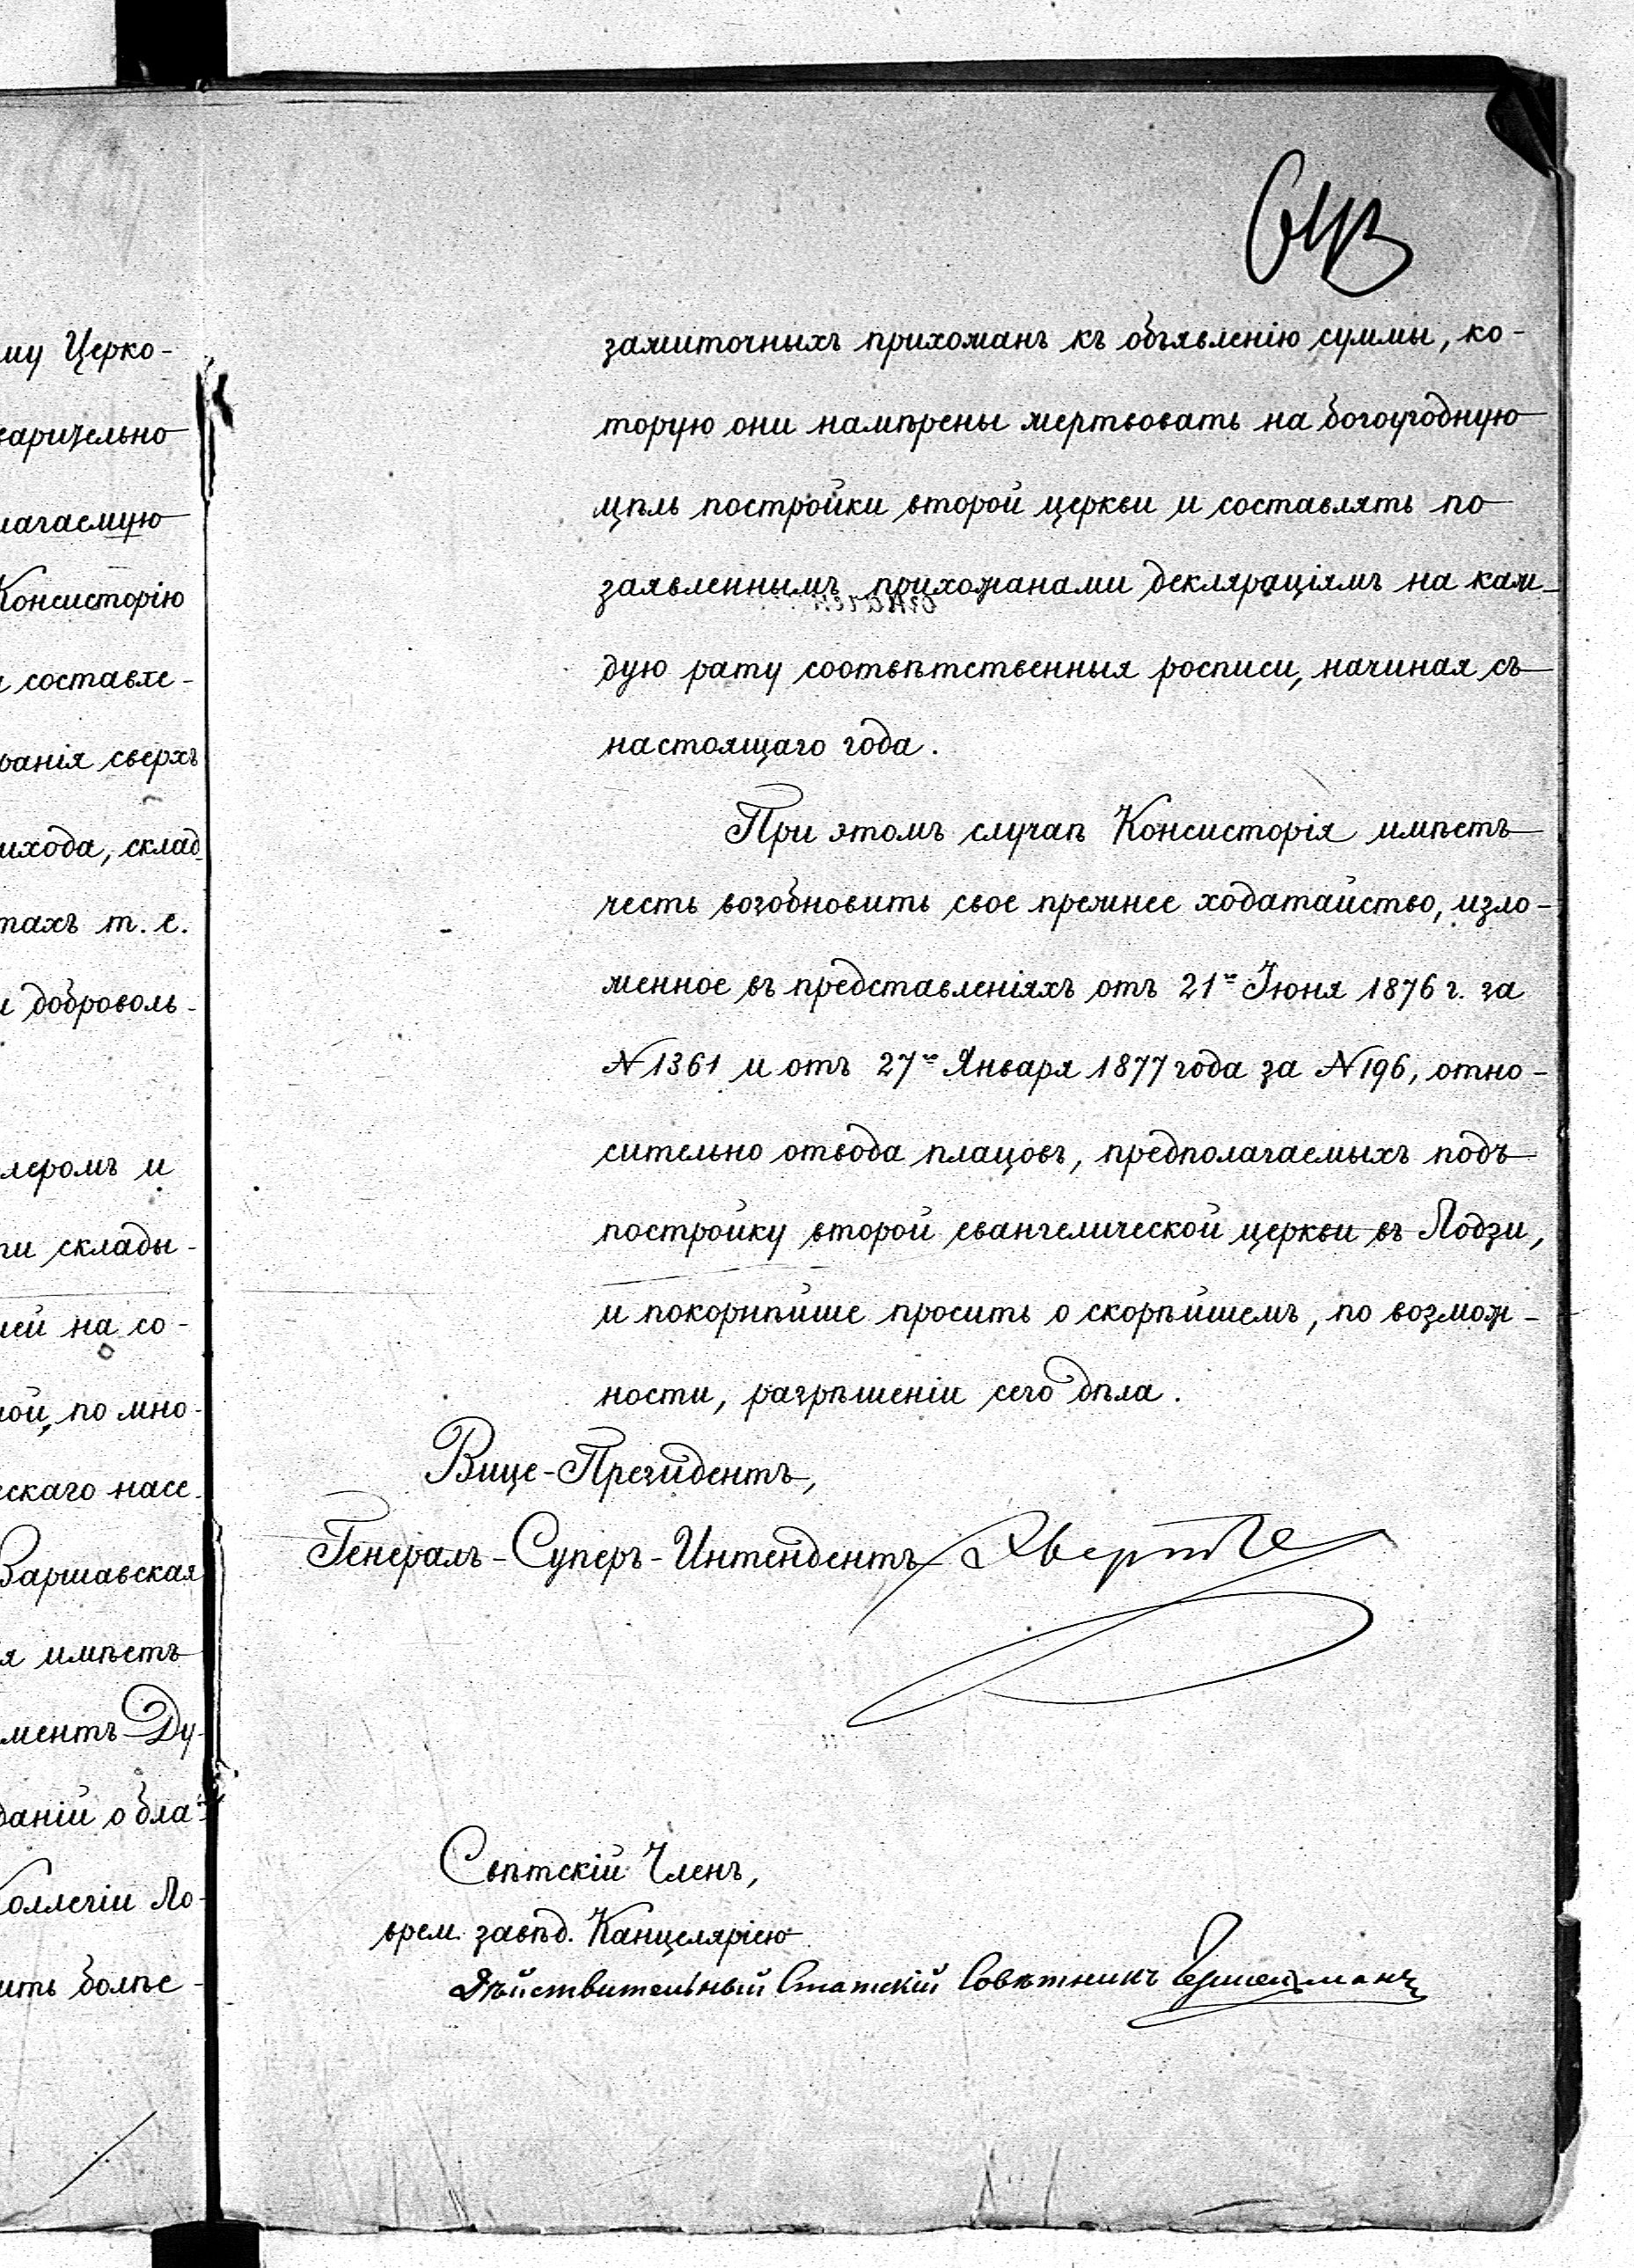 му Церко-
варительно
лагаемую
Консисторію
и составле-
ванія сверхъ
ихода, склад
тахъ т. е.
и доброволь-
леромъ и
ти склады-
лей на со-
ной, по мно-
скаго насе-
Варшавская
я имѣетъ
ментъ Ду-
даній о бла-
Коллегіи Ло-
ить болѣе
зажиточныхъ прихожанъ къ объявленію суммы, ко-
торую они намѣрены жертвовать на богоугодную
цѣль постройки второй церкви и составлять по
заявленнымъ прихожанами деклараціямъ на каж-
дую рату соотвѣтственныя росписи, начиная съ
настоящаго года.
При этомъ случаѣ Консисторія имѣетъ
честь возобновить свое прежнее ходатайство, изло-
женное въ представленіяхъ отъ 21го Іюня 1876 г. за
№ 1361 и отъ 27го Января 1877 года за № 196, отно-
сительно отвода плацовъ, предполагаемыхъ подъ
постройку второй евангелической церкви въ Лодзи,
и покорнѣйше просить о скорѣйшемъ, по возмож-
ности, разрѣшеніи сего дѣла.
Вице-Президентъ,
Генералъ-Суперъ-Интендентъ
Свѣтскій Членъ,
врем. завѣд. Канцеляріею
Дѣйствительный Статскій Совѣтникъ